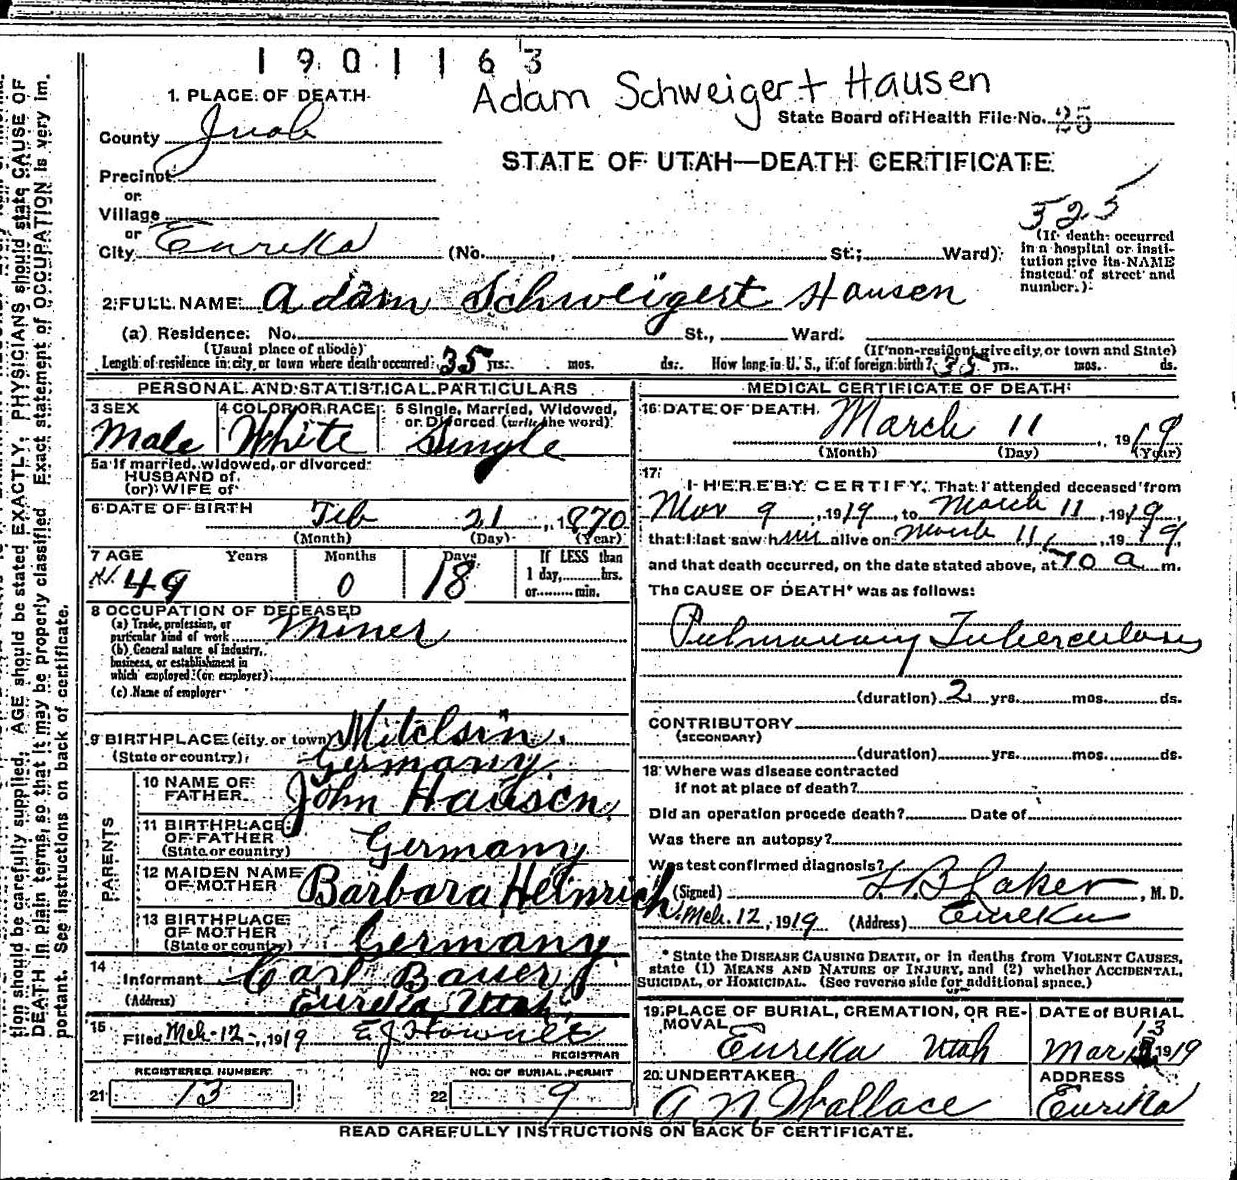 1 9 0 1 1 6 3
Adam Schweigert Hausen
1. PLACE OF DEATH
State Board of Health File No. 25
County Juab
STATE OF UTAH—DEATH CERTIFICATE
Precinct
or
Village
525
or
City Eureka (No. , St.; Ward)
(If death occurred in a hospital or institution give its NAME instead of street and number.)
2 FULL NAME Adam Schweigert Hausen
(a) Residence. No. St., Ward.
(Usual place of abode) (If non-resident give city or town and State)
Length of residence in city or town where death occurred 35 yrs. mos. ds. How long in U. S., if of foreign birth? 35 yrs. mos. ds.
PERSONAL AND STATISTICAL PARTICULARS
3 SEX Male
4 COLOR OR RACE White
5 Single, Married, Widowed, or Divorced (write the word) Single
5a If married, widowed, or divorced
HUSBAND of
(or) WIFE of
6 DATE OF BIRTH Feb 21, 1870
(Month) (Day) (Year)
7 AGE Years Months Days If LESS than
49 0 18 1 day, hrs.
or min.
8 OCCUPATION OF DECEASED
(a) Trade, profession, or particular kind of work Miner
(b) General nature of industry, business, or establishment in which employed (or employer)
(c) Name of employer
9 BIRTHPLACE (city or town) Mitelsin.
(State or country) Germany
PARENTS
10 NAME OF FATHER John Hausen.
11 BIRTHPLACE OF FATHER (State or country) Germany
12 MAIDEN NAME OF MOTHER Barbara Heinrich
13 BIRTHPLACE OF MOTHER (State or country) Germany
14 Informant Carl Bauer
(Address) Eureka Utah
15 Filed Mch-12-, 1919 E J Hownut
REGISTRAR
REGISTERED NUMBER NO. OF BURIAL PERMIT
21 13 22 9
MEDICAL CERTIFICATE OF DEATH
16 DATE OF DEATH March 11, 1919
(Month) (Day) (Year)
17 I HEREBY CERTIFY, That I attended deceased from
Mov 9, 1919, to March 11, 1919,
that I last saw him alive on March 11, 1919,
and that death occurred, on the date stated above, at 70 a m.
The CAUSE OF DEATH* was as follows:
Pulmonary Tuberculosis
(duration) 2 yrs. mos. ds.
CONTRIBUTORY
(SECONDARY)
(duration) yrs. mos. ds.
18 Where was disease contracted
if not at place of death?
Did an operation procede death? Date of
Was there an autopsy?
Was test confirmed diagnosis?
(Signed) L. B. Laker, M. D.
Mch. 12, 1919 (Address) Eureka
* State the DISEASE CAUSING DEATH, or in deaths from VIOLENT CAUSES,
state (1) MEANS AND NATURE OF INJURY, and (2) whether ACCIDENTAL,
SUICIDAL, or HOMICIDAL. (See reverse side for additional space.)
19 PLACE OF BURIAL, CREMATION, OR REMOVAL Eureka Utah
DATE of BURIAL
Mar 13 1919
20 UNDERTAKER A N Wallace
ADDRESS Eureka
READ CAREFULLY INSTRUCTIONS ON BACK OF CERTIFICATE.
tion should be carefully supplied. AGE should be stated EXACTLY. PHYSICIANS should state CAUSE OF
DEATH in plain terms, so that it may be properly classified. Exact statement of OCCUPATION is very im-
portant. See instructions on back of certificate.